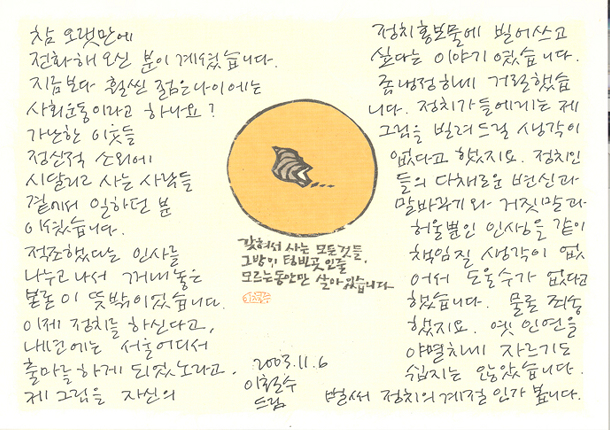 참 오랫만에
전화해 오신 분이 계셨습니다.
지금보다 훨씬 젊은 나이에는
사회운동이라고 하나요?
가난한 이웃들
정신적 소외에
시달리고 사는 사람들
곁에서 일하던 분
이셨습니다.
적조했다는 인사를
나누고 나서 꺼내놓은
본론이 뜻밖이었습니다.
이제 정치를 하신다고,
내년에는 서울 어디서
출마를 하게 되었노라고.
제 그림을 자신의
정치홍보물에 빌어쓰고
싶다는 이야기였습니다.
좀 냉정하게 거절했습
니다. 정치가들에게는 제
그림을 빌려드릴 생각이
없다고 했지요. 정치인
들의 다채로운 변신과
말바꾸기와 거짓말과
허울뿐인 인상을 같이
책임질 생각이 없
어서 도울수가 없다고
했습니다. 물론 죄송
했지요. 옛 인연을
야멸차게 자르기도
쉽지는 않았습니다.
벌써 정치의 계절인가 봅니다.
갇혀서 사는 모든것들.
그방이 텅빈곳인줄
모르는동안만 살아있습니다
2003.11.6
이철수
드림